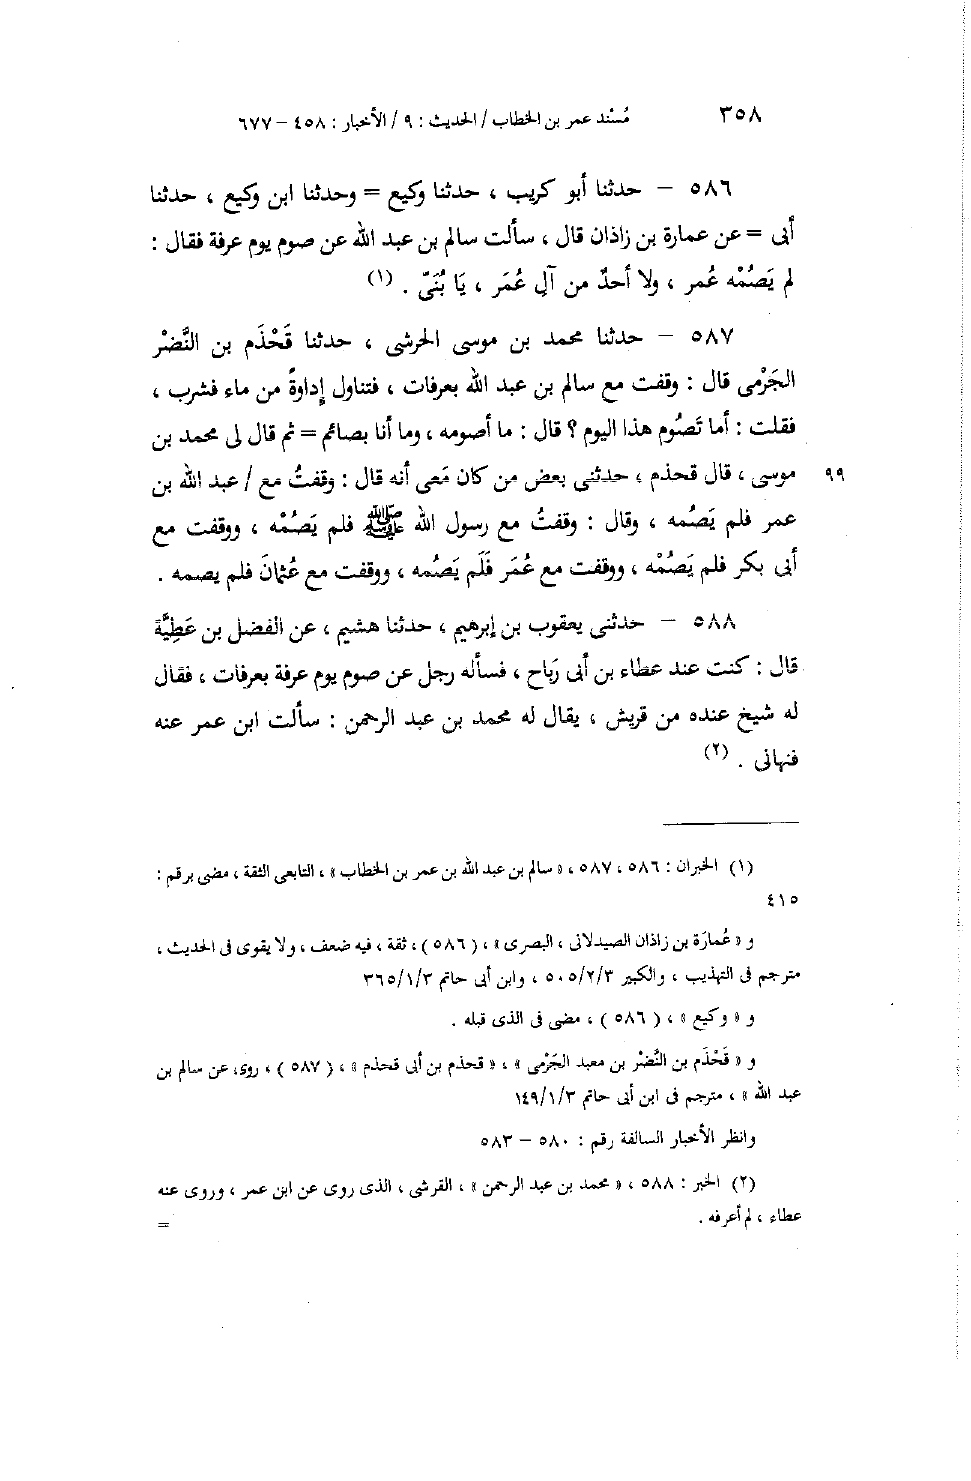 ٣٥٨ مُسْند عمر بن الخطاب / الحديث : ٩ / الأخبار : ٤٥٨ – ٦٧٧
٥٨٦ – حدثنا أبو كريب ، حدثنا وكيع = وحدثنا ابن وكيع ، حدثنا
أبى = عن عمارة بن زاذان قال ، سألت سالم بن عبد الله عن صوم يوم عرفة فقال :
لم يَصُمْه عُمر ، ولا أحدٌ من آلِ عُمَر ، يَا بُنَىّ . (١)
٥٨٧ – حدثنا محمد بن موسى الحرشى ، حدثنا قَحْذَم بن النَّضْر
الجَرْمى قال : وقفت مع سالم بن عبد الله بعرفات ، فتناول إداوةً من ماء فشرب ،
فقلت : أما تَصُوم هذا اليوم ؟ قال : ما أصومه ، وما أنا بصائم = ثم قال لى محمد بن
موسى ، قال قحذم ، حدثنى بعض من كان مَعى أنه قال : وقفتُ مع / عبد الله بن ٩٩
عمر فلم يَصُمه ، وقال : وقفتُ مع رسول الله ﷺ فلم يَصُمْه ، ووقفت مع
أبى بكر فلم يَصُمْه ، ووقفت مع عُمَر فَلَم يَصُمه ، ووقفت مع عُثمانَ فلم يصمه .
٥٨٨ – حدثنى يعقوب بن إبرهيم ، حدثنا هشيم ، عن الفضل بن عَطِيَّة
قال : كنت عند عطاء بن أبى رَباح ، فسأله رجل عن صوم يوم عرفة بعرفات ، فقال
له شيخ عنده من قريش ، يقال له محمد بن عبد الرحمن : سألت ابن عمر عنه
فنهانى . (٢)
(١) الخبران : ٥٨٦ ، ٥٨٧ ، « سالم بن عبد الله بن عمر بن الخطاب » ، التابعى الثقة ، مضى برقم :
٤١٥
و « عُمارَة بن زاذان الصيدلانى ، البصرى » ، ( ٥٨٦ ) ، ثقة ، فيه ضعف ، ولا يقوى فى الحديث ،
مترجم فى التهذيب ، والكبير ٥٠٥/٢/٣ ، وابن أبى حاتم ٣٦٥/١/٣
و « وكيع » ، ( ٥٨٦ ) ، مضى فى الذى قبله .
و « قَحْذَم بن النَّضْر بن معبد الجَرْمى » ، « قحذم بن أبى قحذم » ، ( ٥٨٧ ) ، روى عن سالم بن
عبد الله » ، مترجم فى ابن أبى حاتم ١٤٩/١/٣
وانظر الأخبار السالفة رقم : ٥٨٠ – ٥٨٣
(٢) الخبر : ٥٨٨ ، « محمد بن عبد الرحمن » ، القرشى ، الذى روى عن ابن عمر ، وروى عنه
عطاء ، لم أعرفه . =